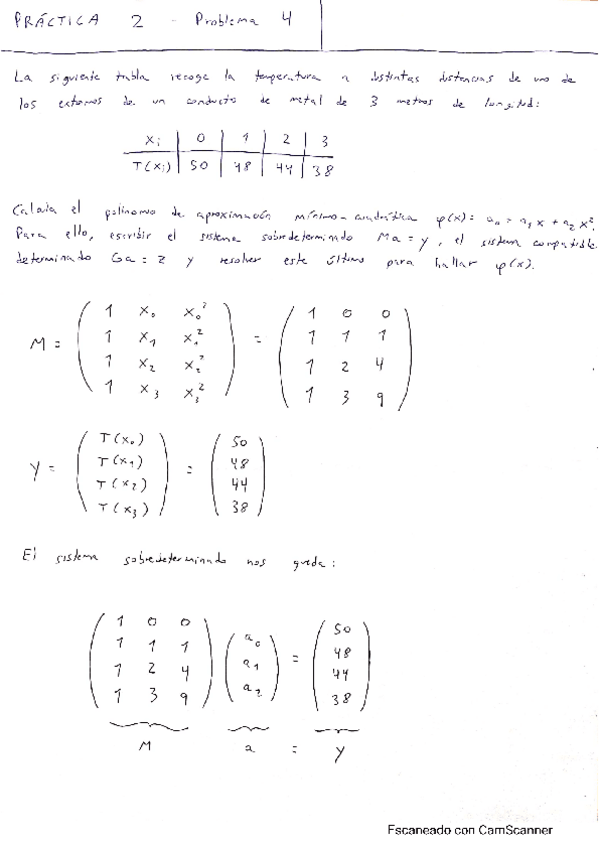 PRÁCTICA 2 - Problema 4
La siguiente tabla recoge la temperatura a distintas distancias de uno de
los extremos de un conducto de metal de 3 metros de longitud:
xi | 0 | 1 | 2 | 3
T(xi) | 50 | 48 | 44 | 38
Calcula el polinomio de aproximación mínimo-cuadrática φ(x) = a0 + a1 x + a2 x².
Para ello, escribir el sistema sobredeterminado Ma = y, el sistema compatible
determinado Ga = z y resolver este último para hallar φ(x).
M = ( 1 x0 x0² ) = ( 1 0 0 )
1 x1 x1² 1 1 1
1 x2 x2² 1 2 4
1 x3 x3² 1 3 9
Y = ( T(x0) ) = ( 50 )
T(x1) 48
T(x2) 44
T(x3) 38
El sistema sobredeterminado nos queda:
1 0 0 50
1 1 1 a0 48
1 2 4 a1 = 44
1 3 9 a2 38
M a = Y
Escaneado con CamScanner